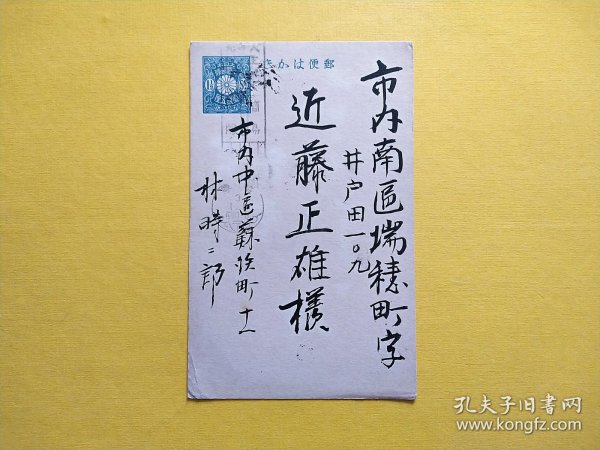 郵便はがき
市内南區瑞穂町字
井戸田一〇九
近藤正雄様
市内中區蘇鉄町十一
林時二郎
孔夫子旧书网
www.kongfz.com